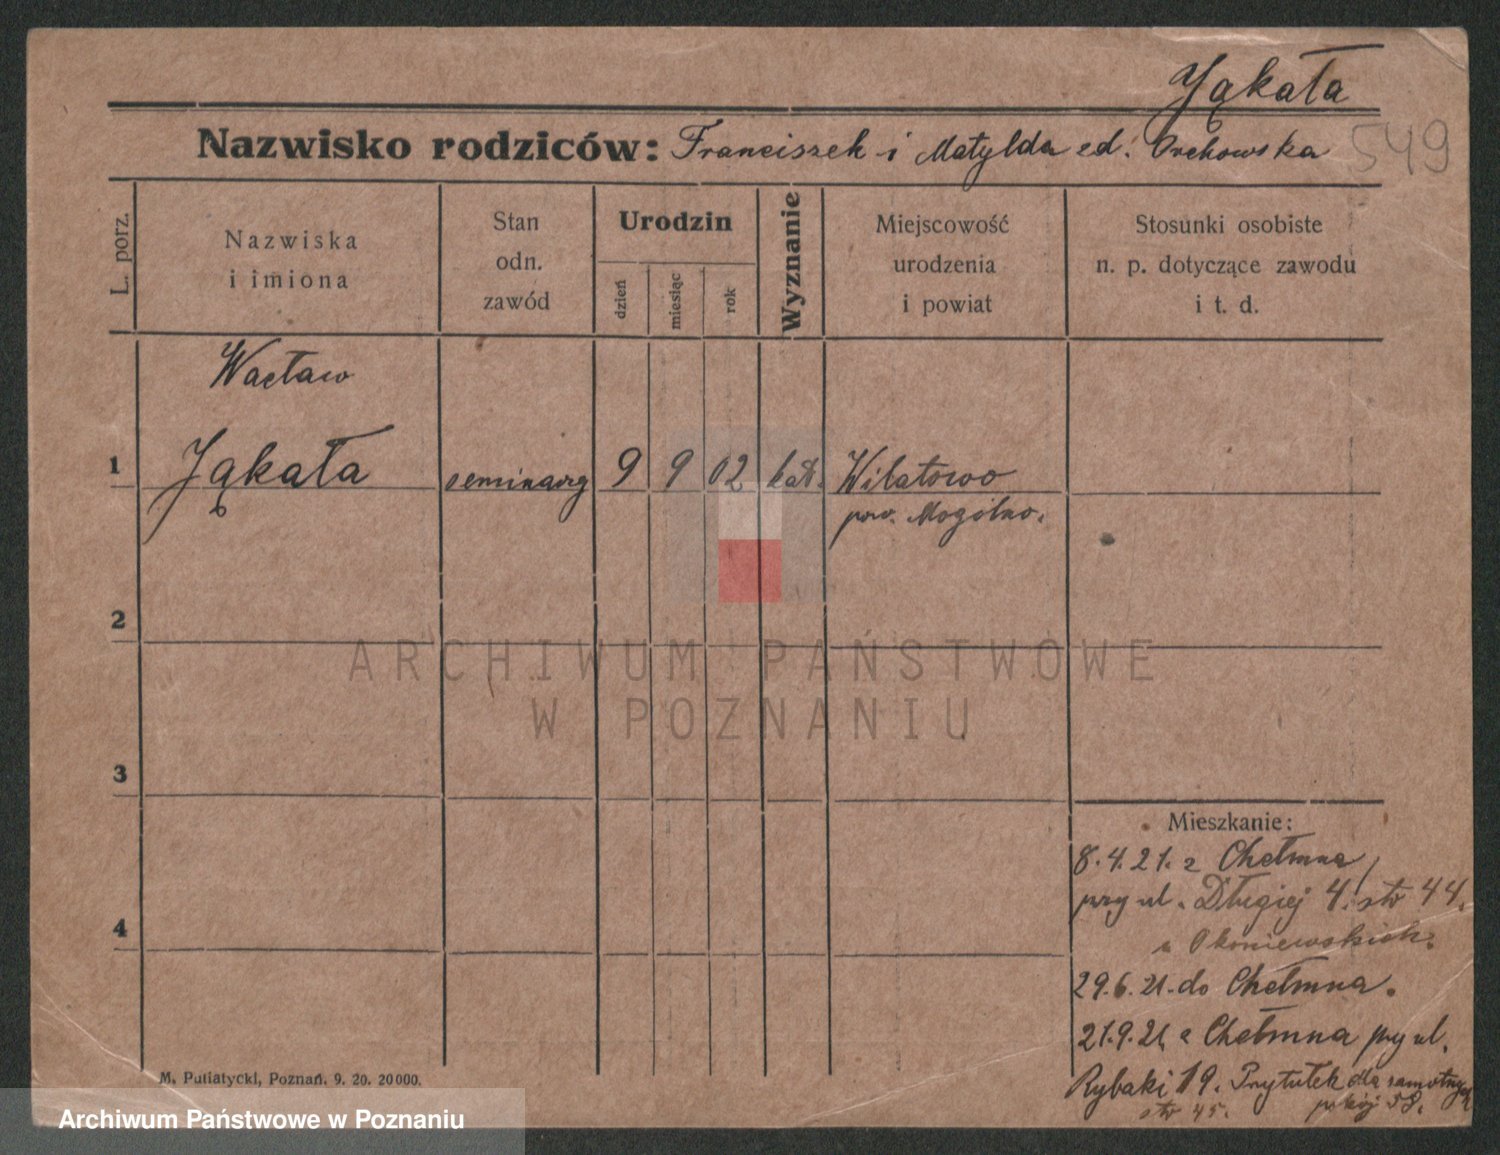 Jąkała
549
Nazwisko rodziców: Franciszek i Matylda zd. Orchowska
L. porz.
Nazwiska
i imiona
Stan
odn.
zawód
Urodzin
dzień
miesiąc
rok
Wyznanie
Miejscowość
urodzenia
i powiat
Stosunki osobiste
n. p. dotyczące zawodu
i t. d.
Wacław
1 Jąkała seminarz 9 9 02 kat. Wilatowo
pow. Mogilno.
2
3
4
ARCHIWUM PAŃSTWOWE
W POZNANIU
Mieszkanie:
8.4.21. z Chełmna
przy ul. Długiej 4. str 44.
u Okoniewskich.
29.6.21. do Chełmna.
21.9.21 z Chełmna przy ul.
Rybaki 19. Przytułek dla samotnych
str 45. pokój 58.
M. Putiatycki, Poznań. 9. 20. 20000.
Archiwum Państwowe w Poznaniu